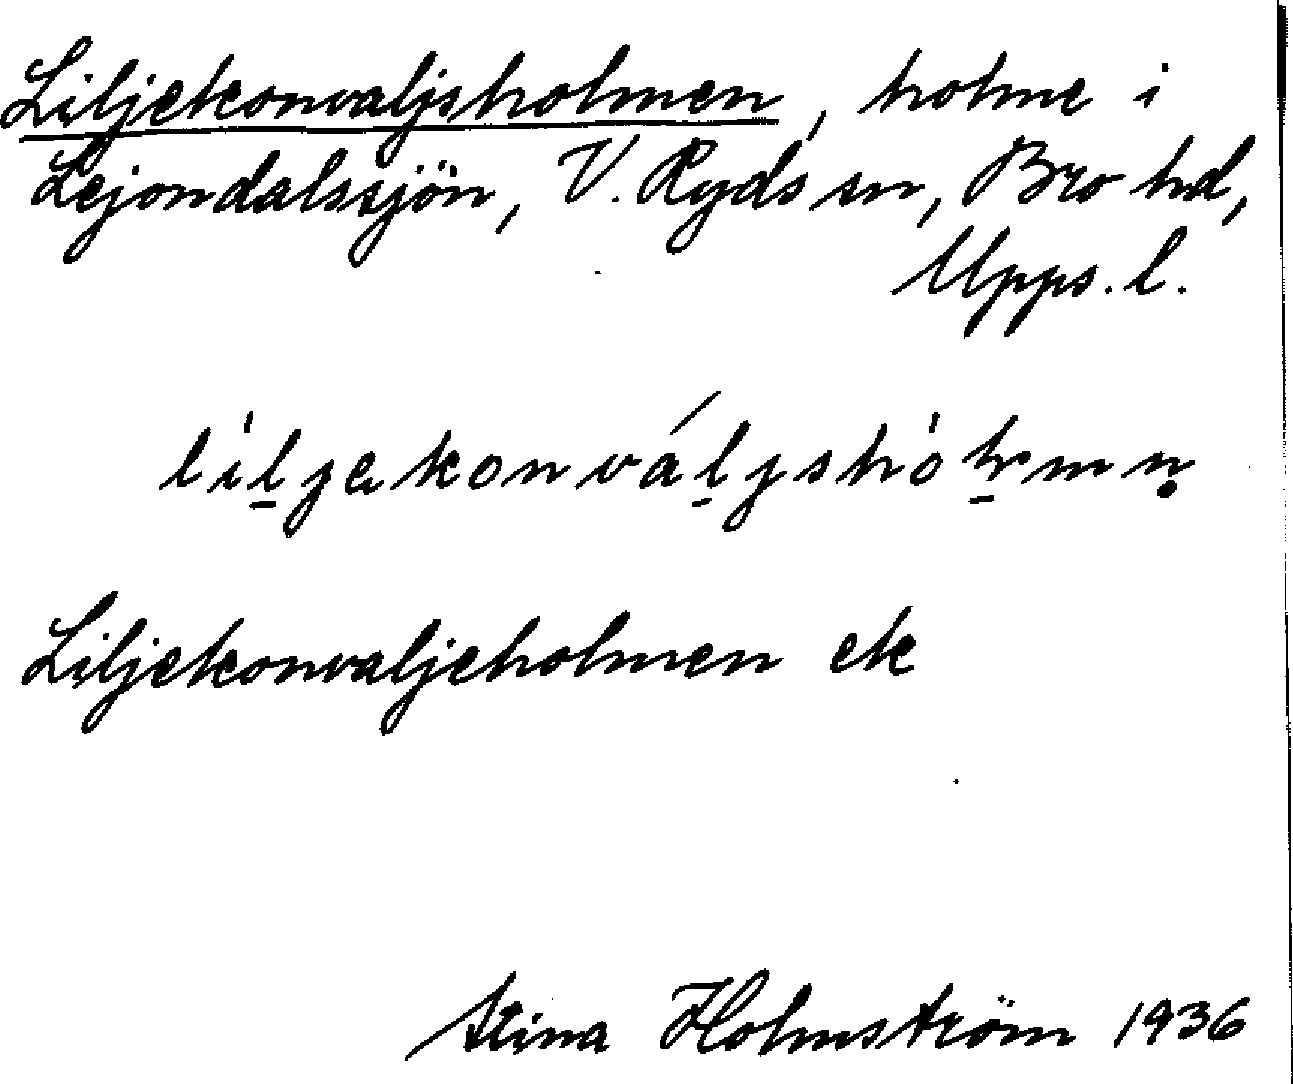 Liljekonvaljsholmen, holme i
Lejondalssjön, V. Ryds sn, Bro hd,
Upps. l.
lìljekonváljshòlmn̥
Liljekonvaljeholmen ek
Stina Holmström 1936